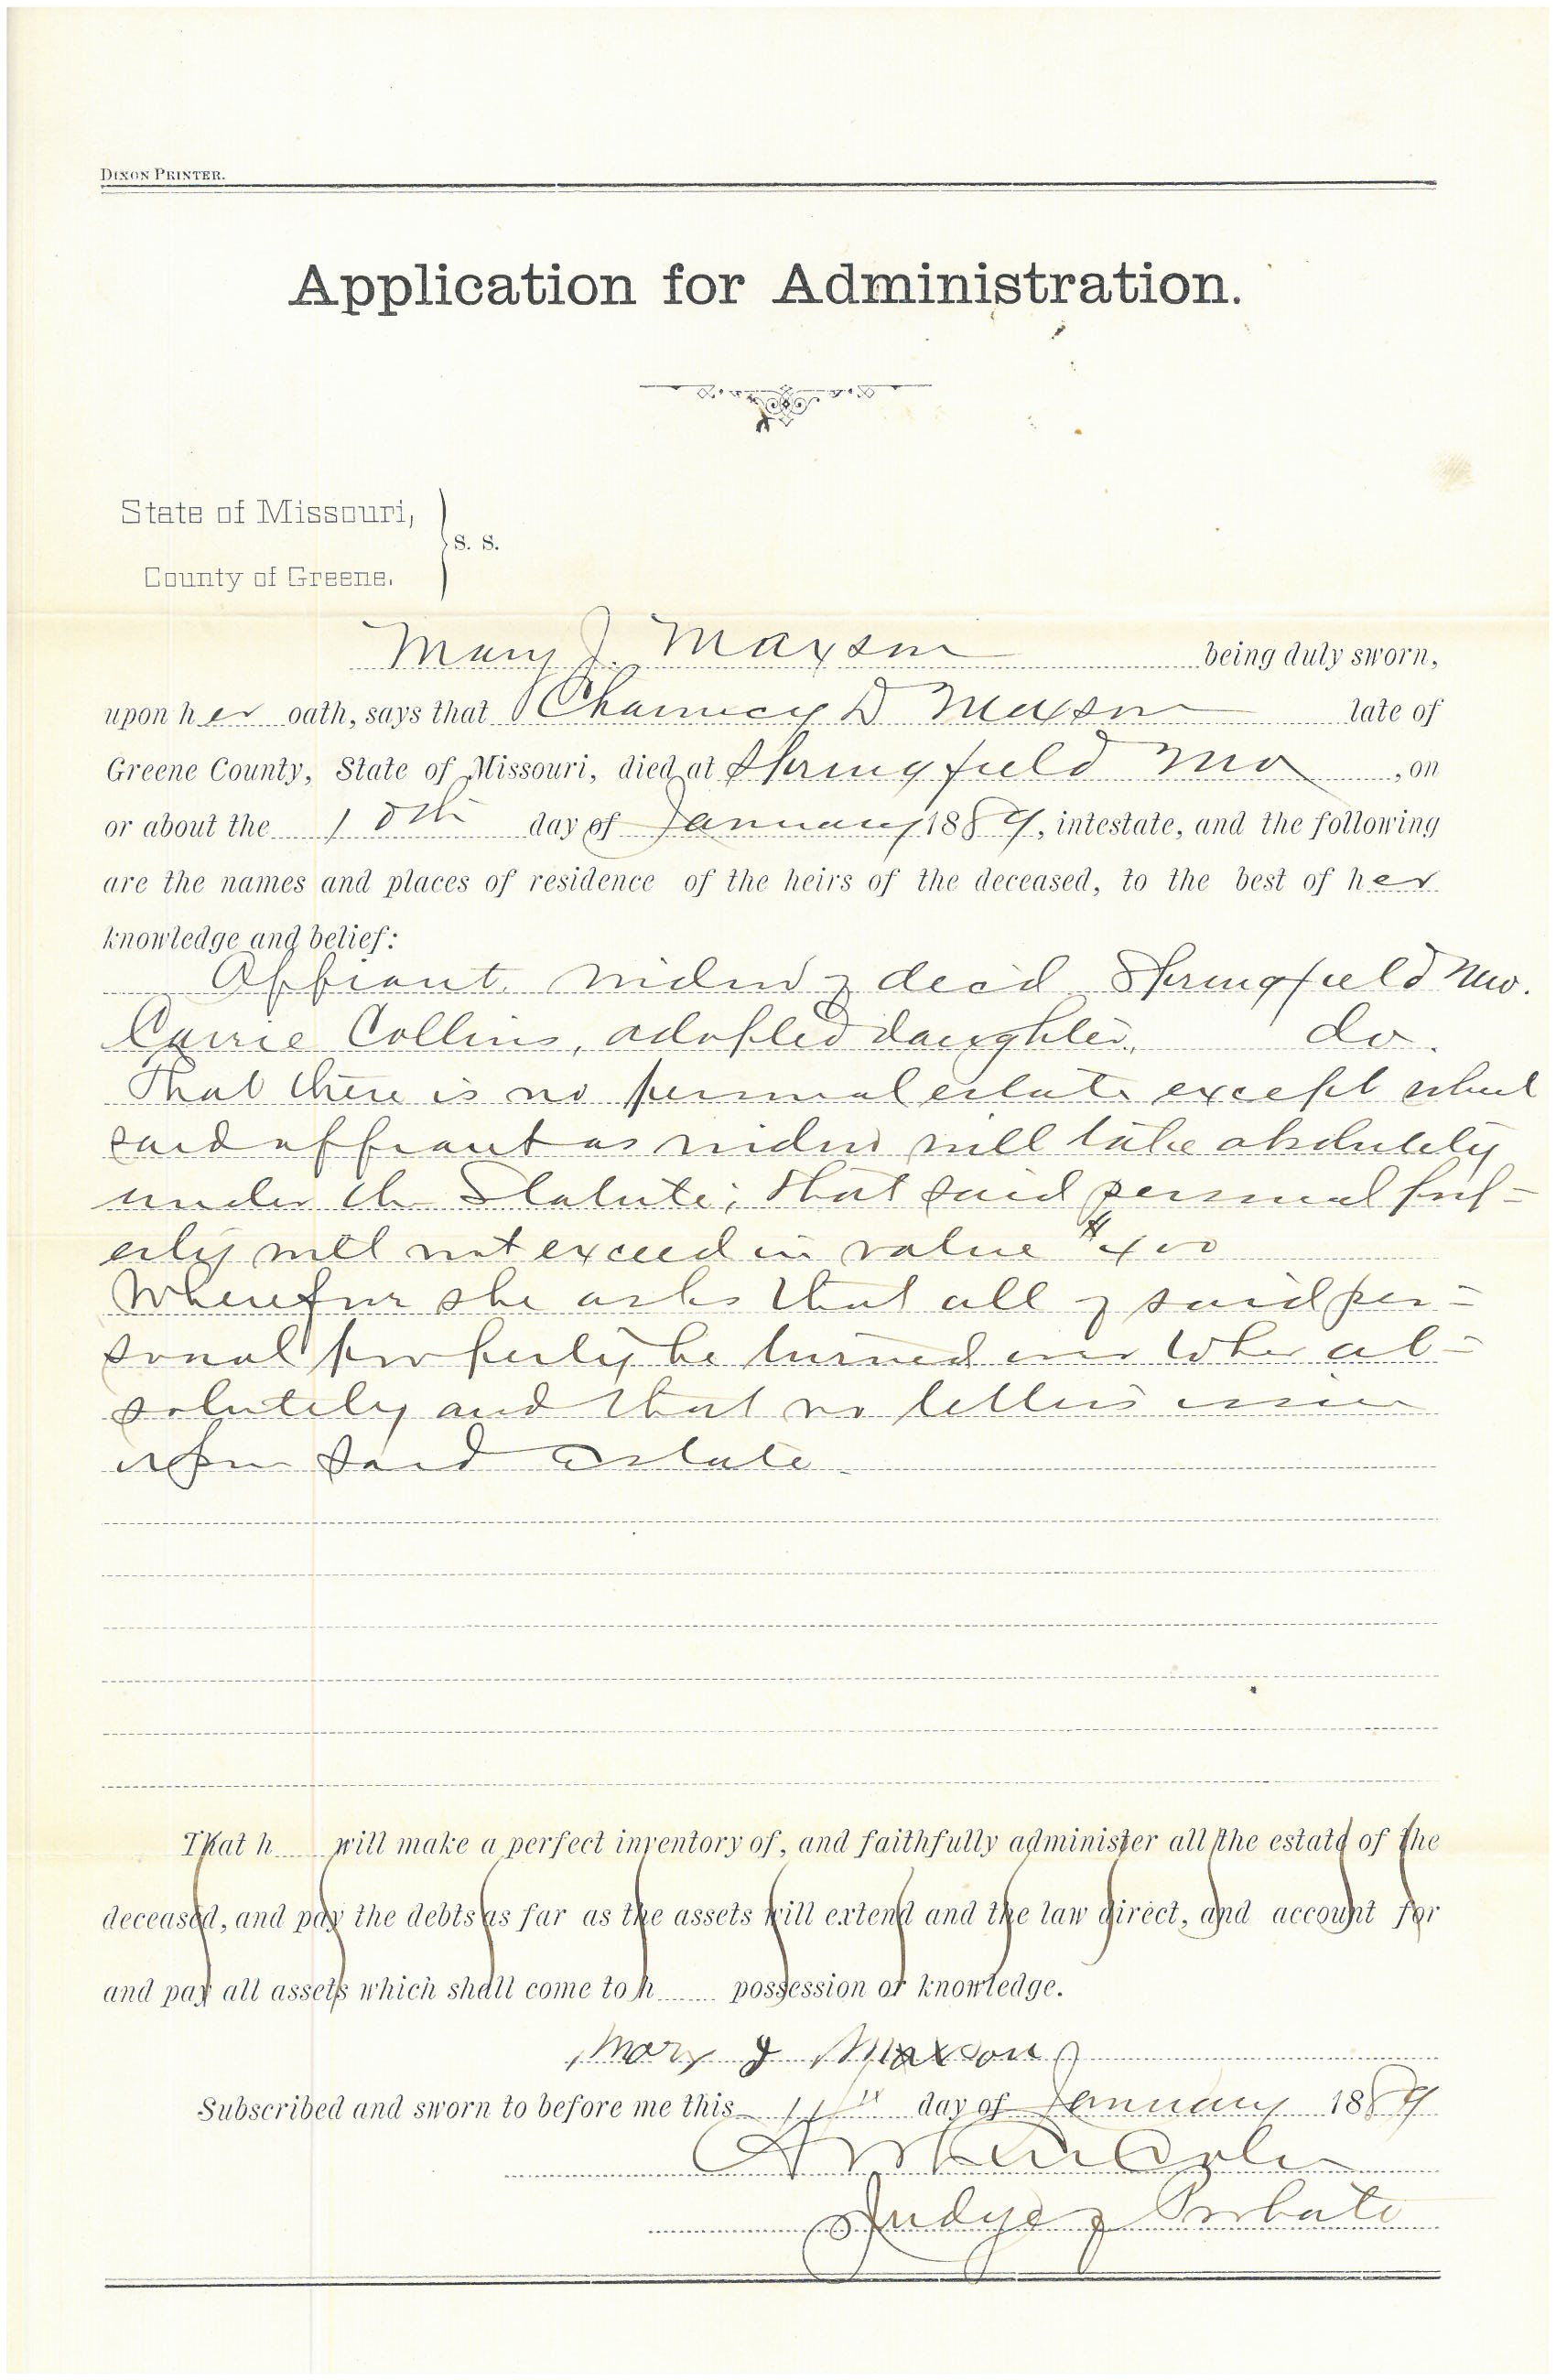 DIXON PRINTER.
Application for Administration.
State of Missouri,
S. S.
County of Greene.
Mary J. Maxson being duly sworn,
upon her oath, says that Chauncey D Maxson late of
Greene County, State of Missouri, died at Springfield Mo, on
or about the 10th day of January 1889, intestate, and the following
are the names and places of residence of the heirs of the deceased, to the best of her
knowledge and belief:
Affiant, widow of dec'd Springfield Mo.
Carrie Collins, adopted daughter, do.
That there is no personal estate except what
said affiant as widow will take absolutely
under the Statute; that said personal prop=
erty will not exceed in value $400
Wherefore she asks that all of said per=
sonal property be turned over to her ab=
solutely and that no letters issue
upon said Estate.
That h will make a perfect inventory of, and faithfully administer all the estate of the
deceased, and pay the debts as far as the assets will extend and the law direct, and account for
and pay all assets which shall come to h possession or knowledge.
Mary J Maxson
Subscribed and sworn to before me this 11th day of January 1889
Judge of Probate